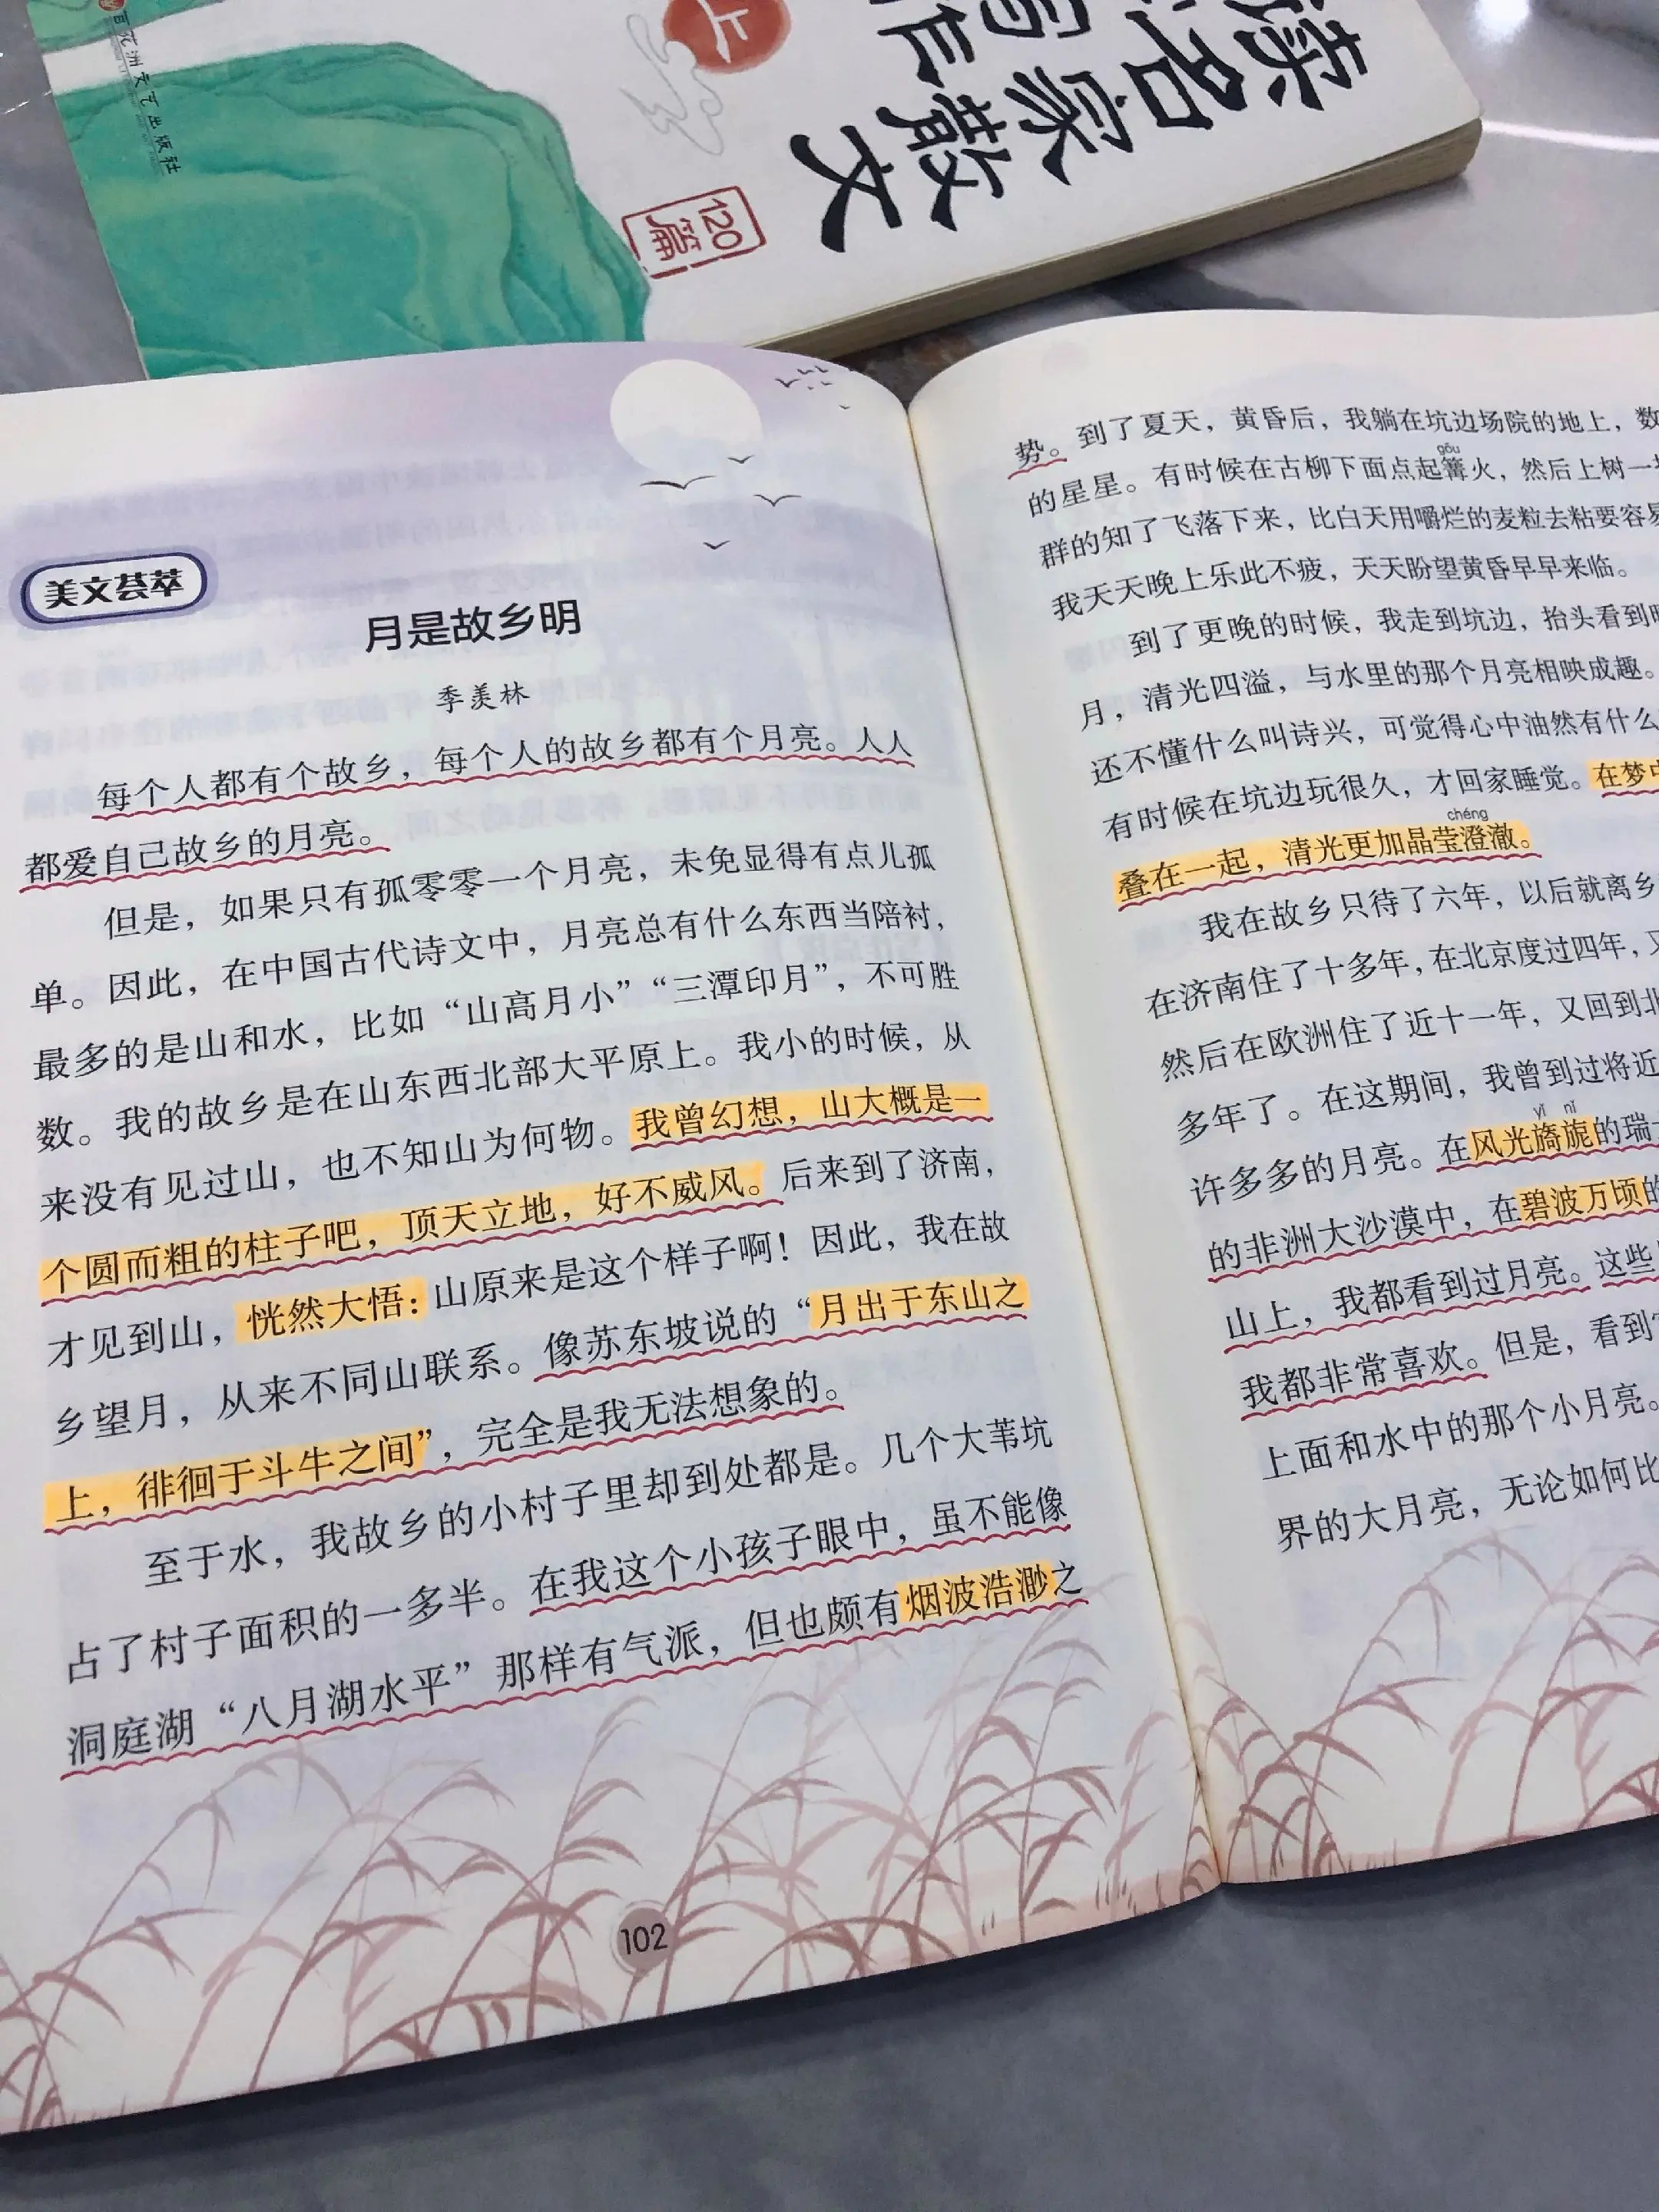 百花洲文艺出版社
上
读名家散文
写作
120篇
美文荟萃
月是故乡明
季羡林
每个人都有个故乡，每个人的故乡都有个月亮。人人
都爱自己故乡的月亮。
但是，如果只有孤零零一个月亮，未免显得有点儿孤
单。因此，在中国古代诗文中，月亮总有什么东西当陪衬，
最多的是山和水，比如“山高月小”“三潭印月”，不可胜
数。我的故乡是在山东西北部大平原上。我小的时候，从
来没有见过山，也不知山为何物。我曾幻想，山大概是一
个圆而粗的柱子吧，顶天立地，好不威风。后来到了济南，
才见到山，恍然大悟：山原来是这个样子啊！因此，我在故
乡望月，从来不同山联系。像苏东坡说的“月出于东山之
上，徘徊于斗牛之间”，完全是我无法想象的。
至于水，我故乡的小村子里却到处都是。几个大苇坑
占了村子面积的一多半。在我这个小孩子眼中，虽不能像
洞庭湖“八月湖水平”那样有气派，但也颇有烟波浩渺之
102
势。到了夏天，黄昏后，我躺在坑边场院的地上，数
gōu
的星星。有时候在古柳下面点起篝火，然后上树一
群的知了飞落下来，比白天用嚼烂的麦粒去粘要容易
我天天晚上乐此不疲，天天盼望黄昏早早来临。
到了更晚的时候，我走到坑边，抬头看到
月，清光四溢，与水里的那个月亮相映成趣。
还不懂什么叫诗兴，可觉得心中油然有什么
有时候在坑边玩很久，才回家睡觉。在梦中
chéng
叠在一起，清光更加晶莹澄澈。
我在故乡只待了六年，以后就离乡
在济南住了十多年，在北京度过四年，又
然后在欧洲住了近十一年，又回到北
多年了。在这期间，我曾到过将近
yǐ nǐ
许多多的月亮。在风光旖旎的瑞
的非洲大沙漠中，在碧波万顷的
山上，我都看到过月亮。这些
我都非常喜欢。但是，看到
上面和水中的那个小月亮。
界的大月亮，无论如何比